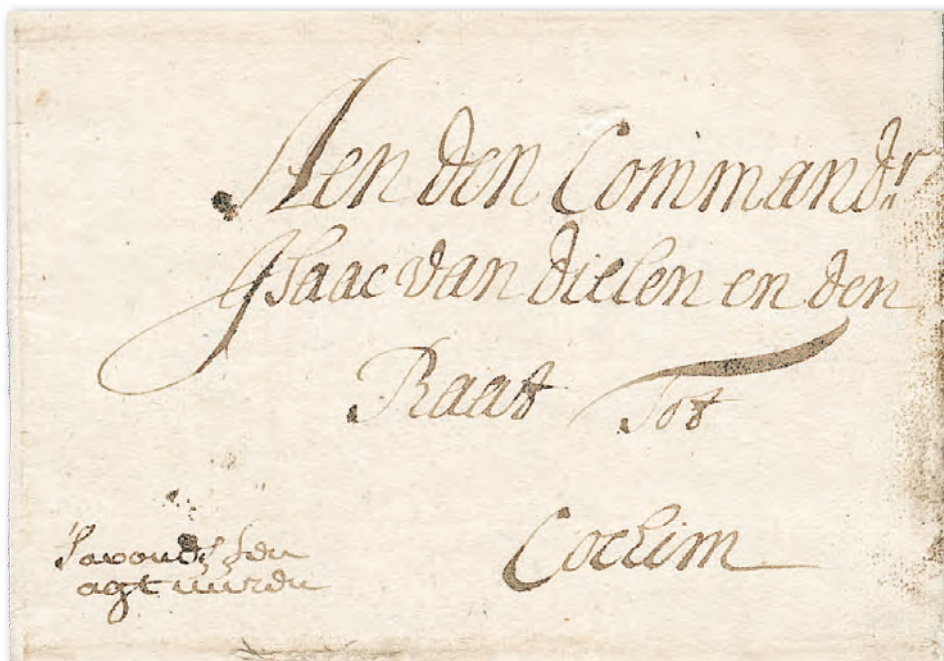 Aen den Commandr
Isaac van Dielen en den
Raat Tot
Cochim
'Savonds ten
agt uuren